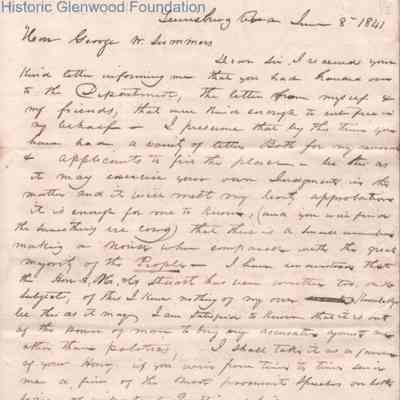 Historic Glenwood Foundation
Lewisburg June 8th 1841
Hon George W. Summers
Dear Sir, I received your
kind letter informing me that you had handed over
to the Department, the letter from myself &
my friends, that were kind enough to
my behalf – I presume that by this time you
have had a variety of letters Both for my
& applicants to fill the place – be this as
it may exercise your own Judgment in the
matter and it will meet my hearty approbation
it is enough for me to know, (and you will find
the something) that there is a small number
making a noise when compared with the great
majority of the People – I have understood that
the Hon Stuart has been written too, on the
subject, of this I know nothing of my own knowledge
be this as it may, I am satisfied to know that it is out
of the power of man to bring any accusation against me
other than political, I shall take it as a favor
of your Honor, if you will from time to time send
me a few of the most prominent Speeches on both